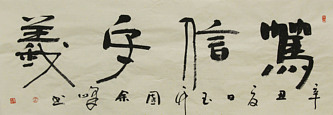 篤信守義
辛丑夏日玉竹園余峰書